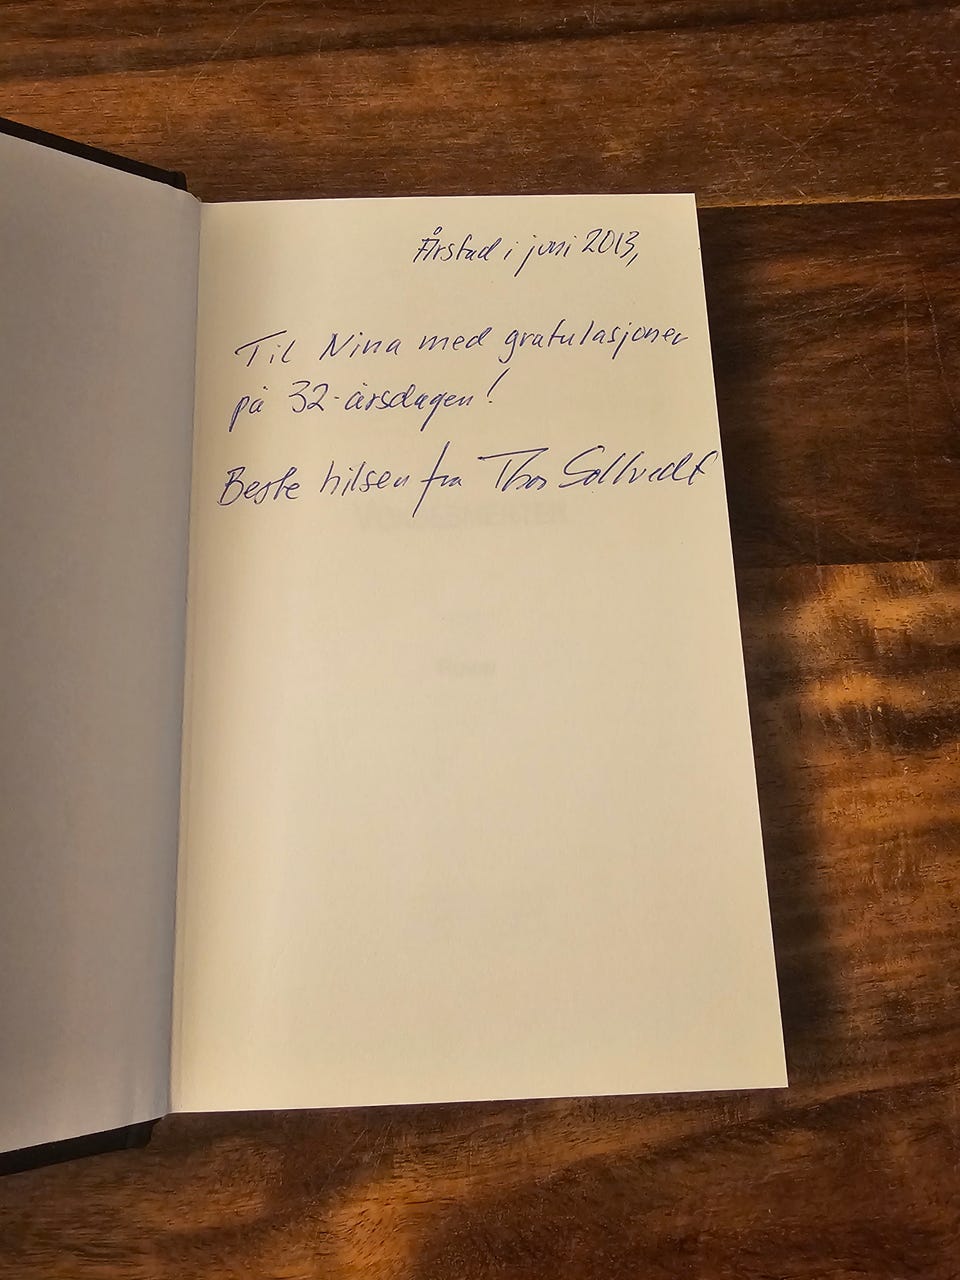 Årstad i juni 2013,
Til Nina med gratulasjoner
på 32-årsdagen!
Beste hilsen fra Thor Sollvedt